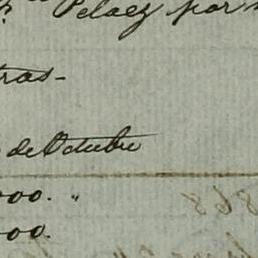 Pelaez por
tras-
de Octubre
000. "
000.